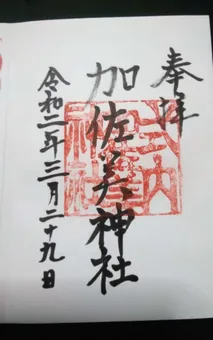 奉拝
加佐美神社
令和二年三月二十九日
式内